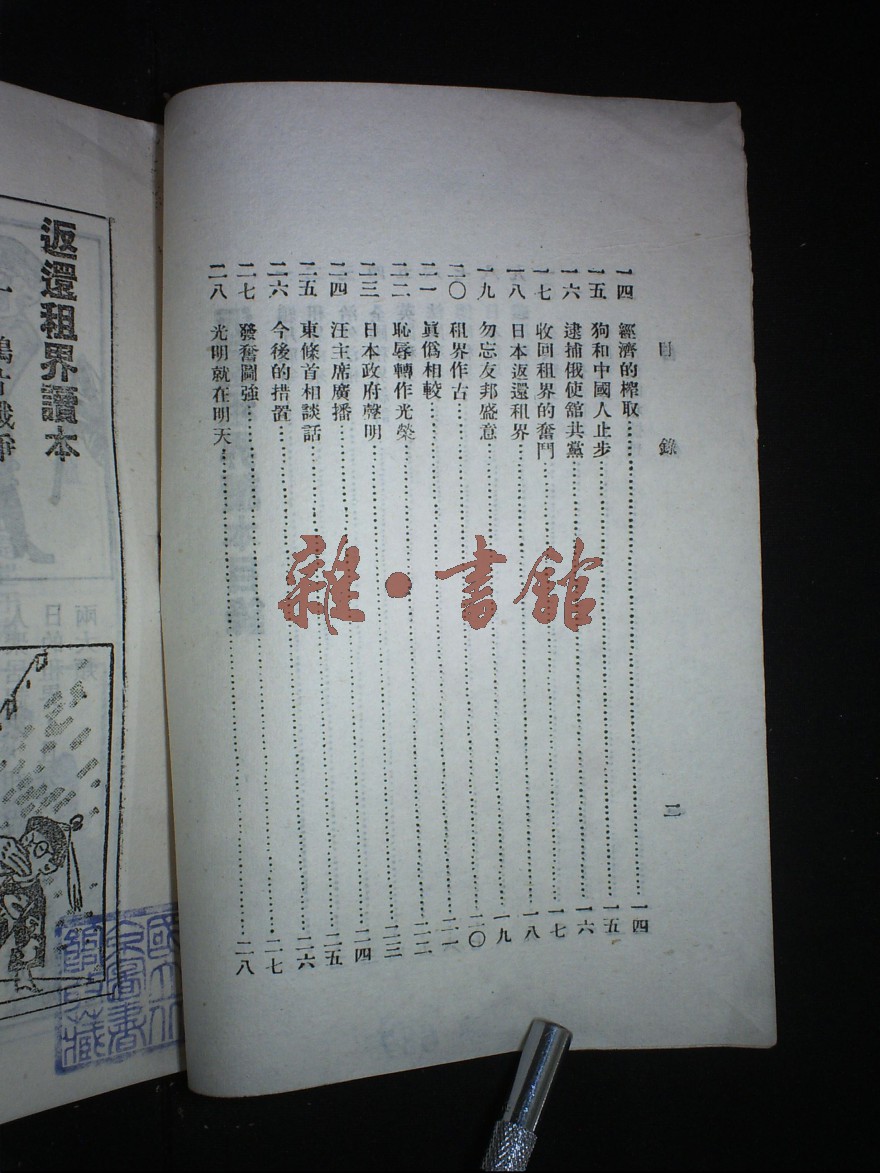 目錄 二
一四 經濟的榨取……一四
一五 狗和中國人止步……一五
一六 逮捕俄使舘共黨……一六
一七 收回租界的奮鬥……一七
一八 日本返還租界……一八
一九 勿忘友邦盛意……一九
二〇 租界作古……二〇
二一 眞僞相較……二一
二二 恥辱轉作光榮……二二
二三 日本政府聲明……二三
二四 汪主席廣播……二四
二五 東條首相談話……二五
二六 今後的措置……二六
二七 發奮圖強……二七
二八 光明就在明天……二八
雜•書舘
返還租界讀本